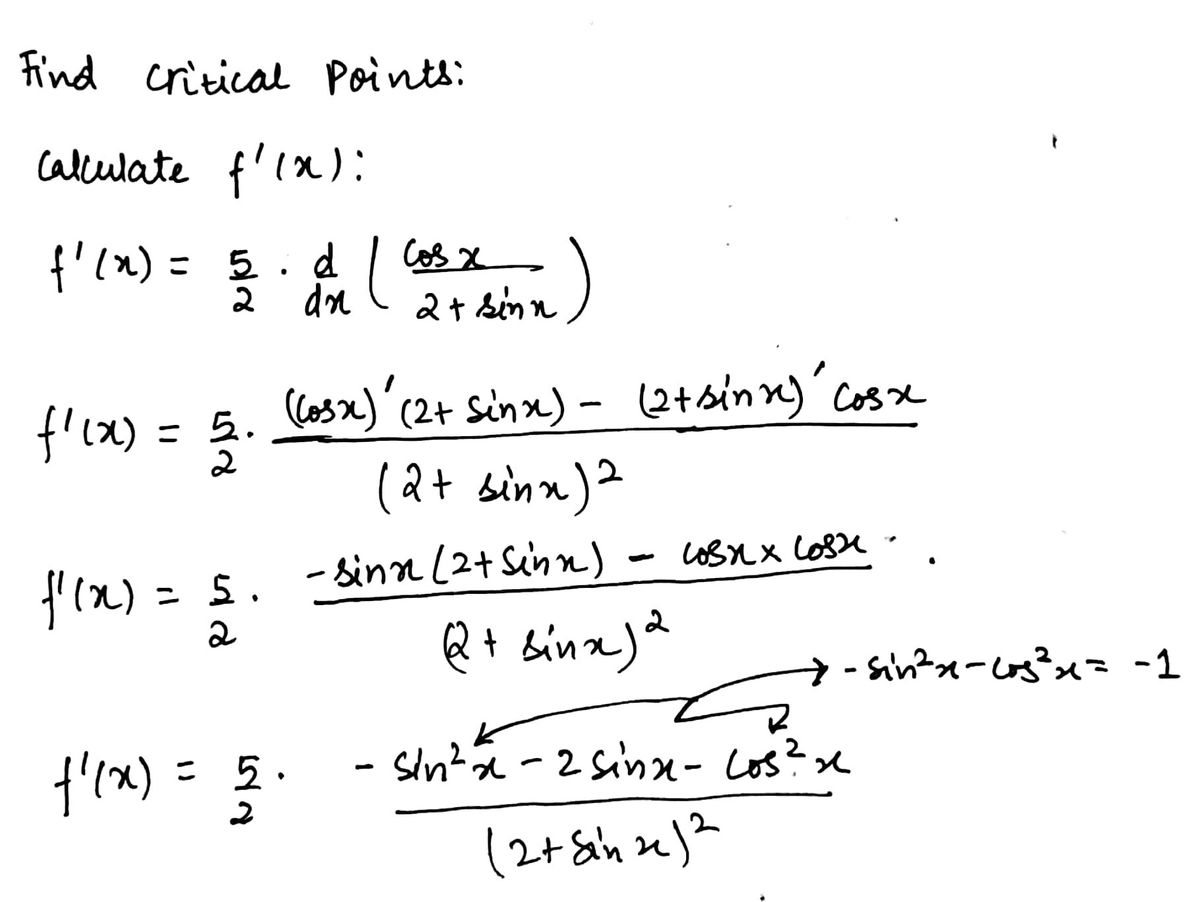 Find critical Points:
Calculate f'(x):
f'(x) = 5/2 · d/dx ( cos x / 2 + sin x )
f'(x) = 5/2 · (cosx)' (2+ sinx) - (2+sinx)' cosx / (2+ sinx)²
f'(x) = 5/2 · -sinx (2+sinx) - cosx × cosx / (2 + sinx)²
→ - sin²x - cos²x = -1
f'(x) = 5/2 · - sin²x - 2 sinx - cos²x / (2+ sin x)²